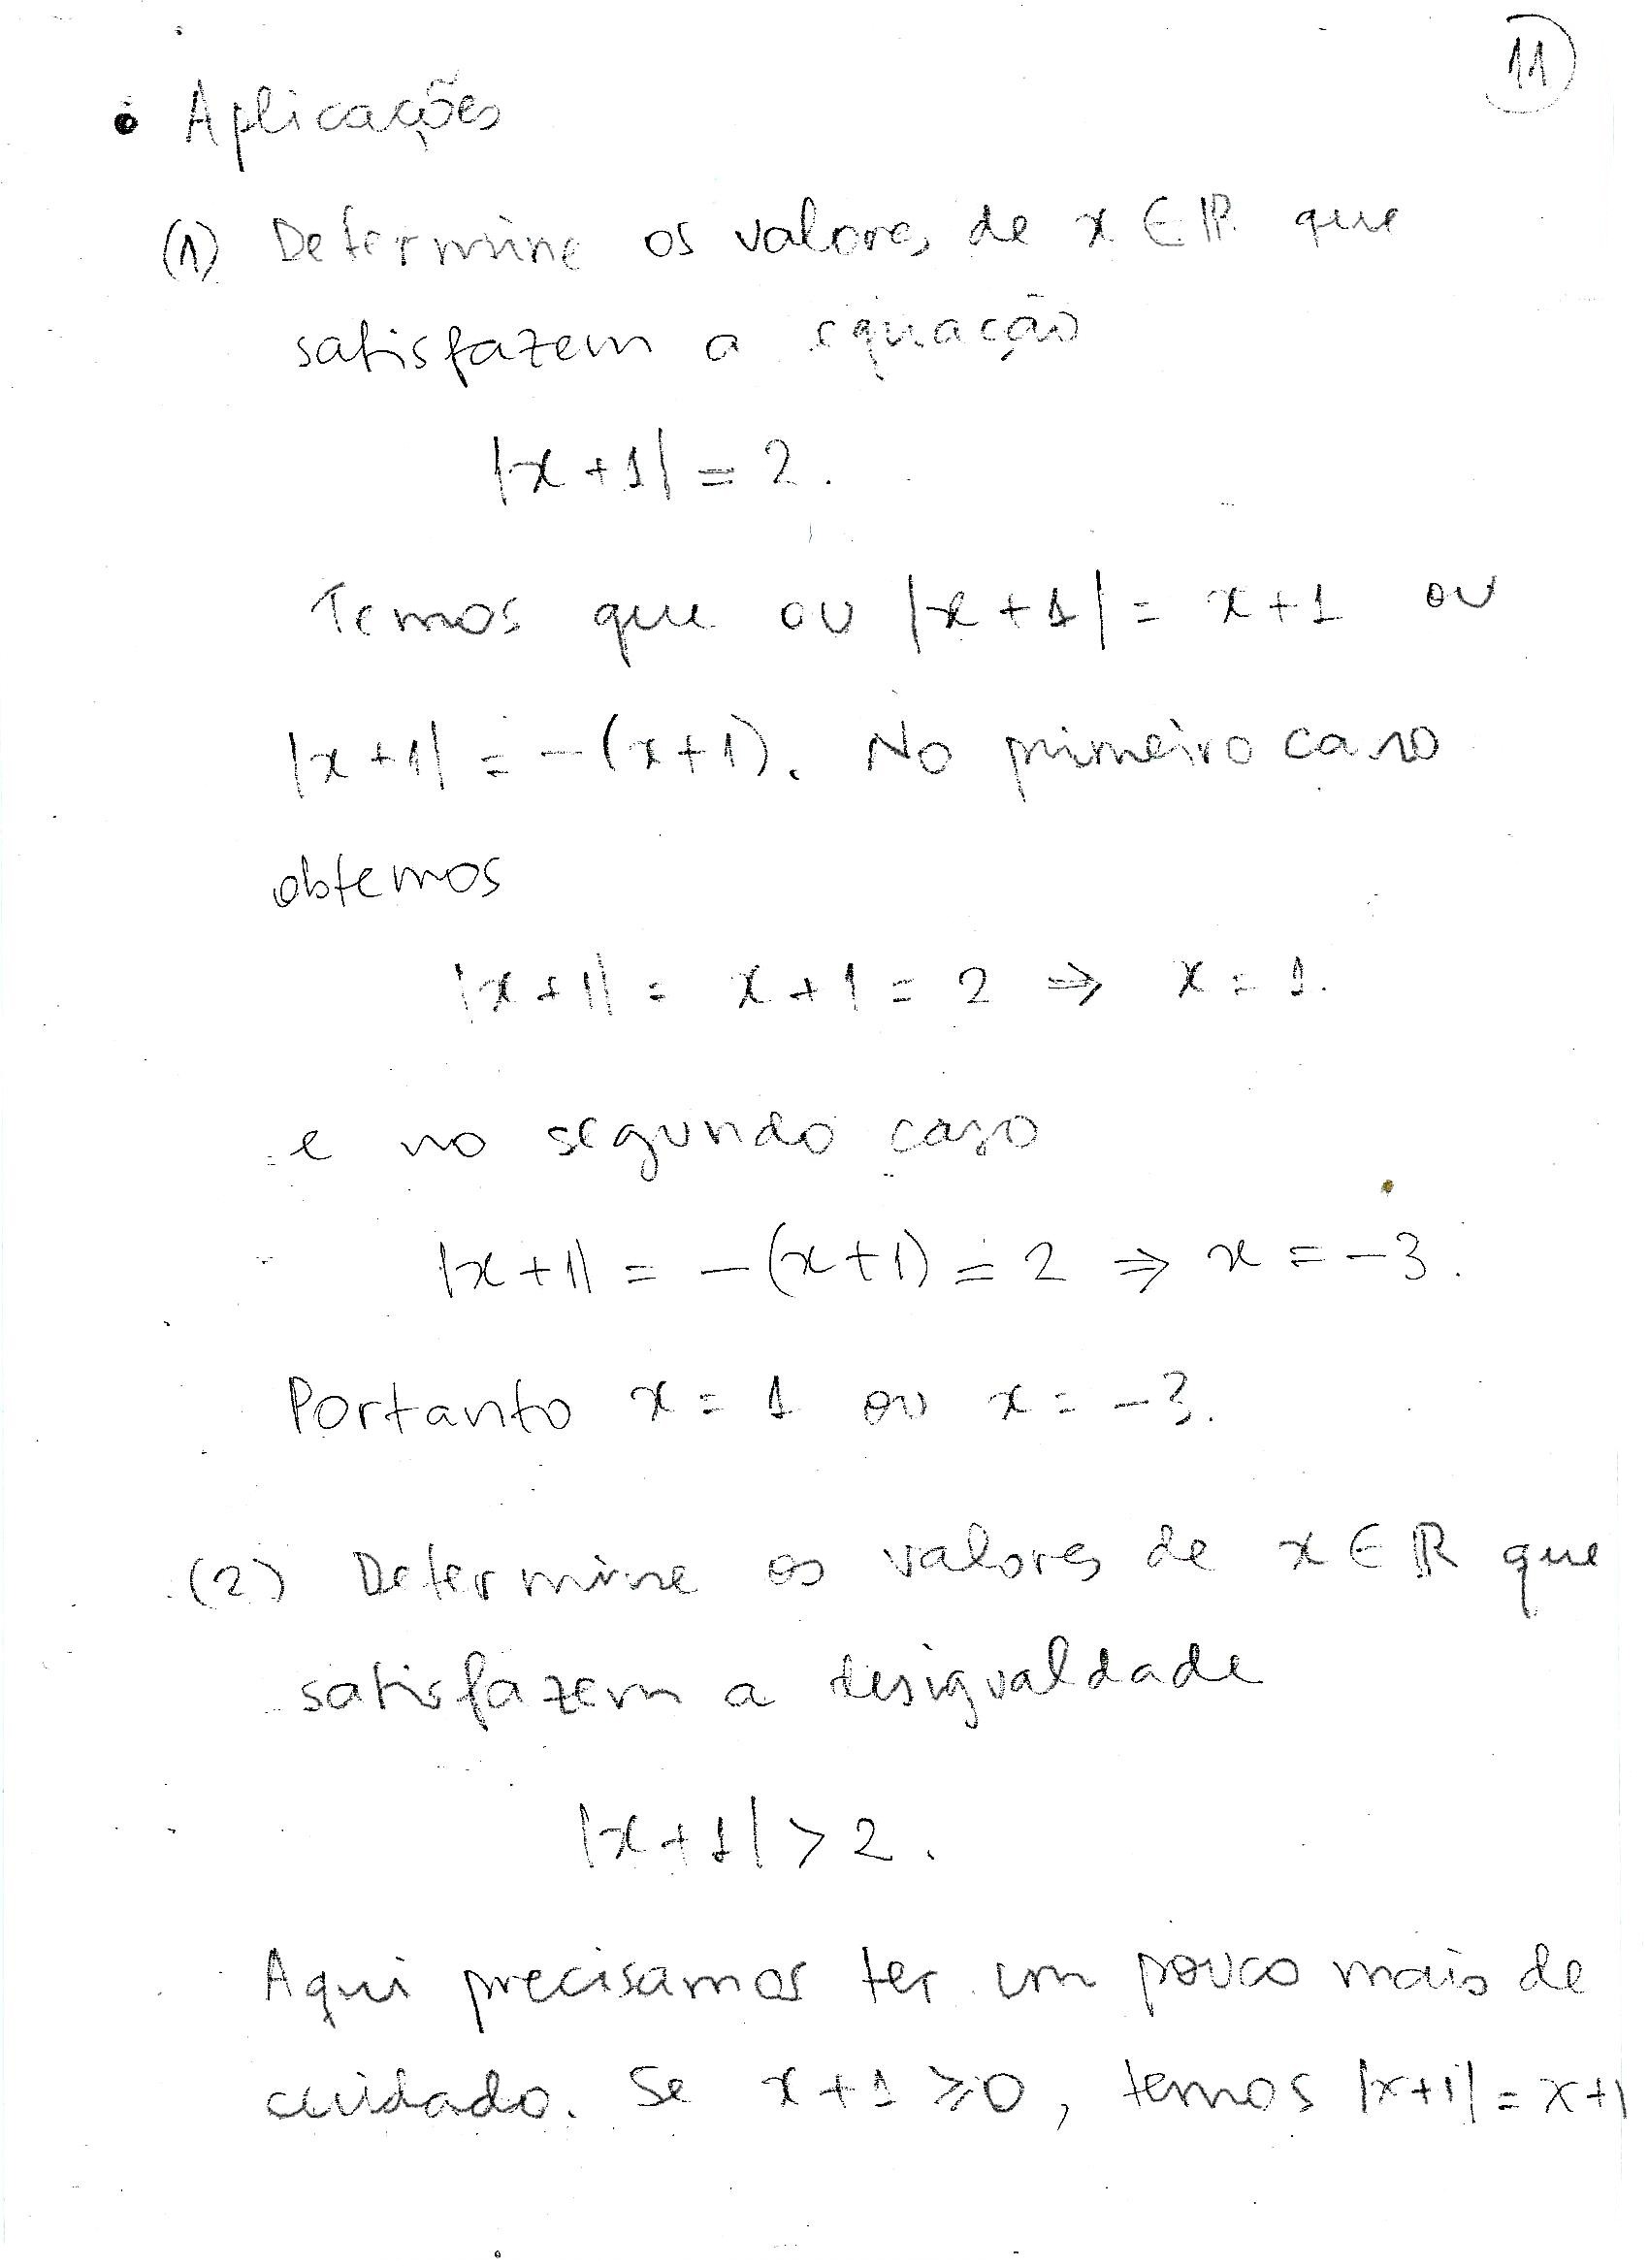 11
• Aplicações
(1) Determine os valores de x ∈ ℝ que
satisfazem a equação
|x+1| = 2.
Temos que ou |x+1| = x+1 ou
|x+1| = -(x+1). No primeiro caso
obtemos
|x+1| = x+1 = 2 ⇒ x = 1.
e no segundo caso
|x+1| = -(x+1) = 2 ⇒ x = -3.
Portanto x = 1 ou x = -3.
(2) Determine os valores de x ∈ ℝ que
satisfazem a desigualdade
|x+1| > 2.
Aqui precisamos ter um pouco mais de
cuidado. Se x+1 ⩾ 0, temos |x+1| = x+1